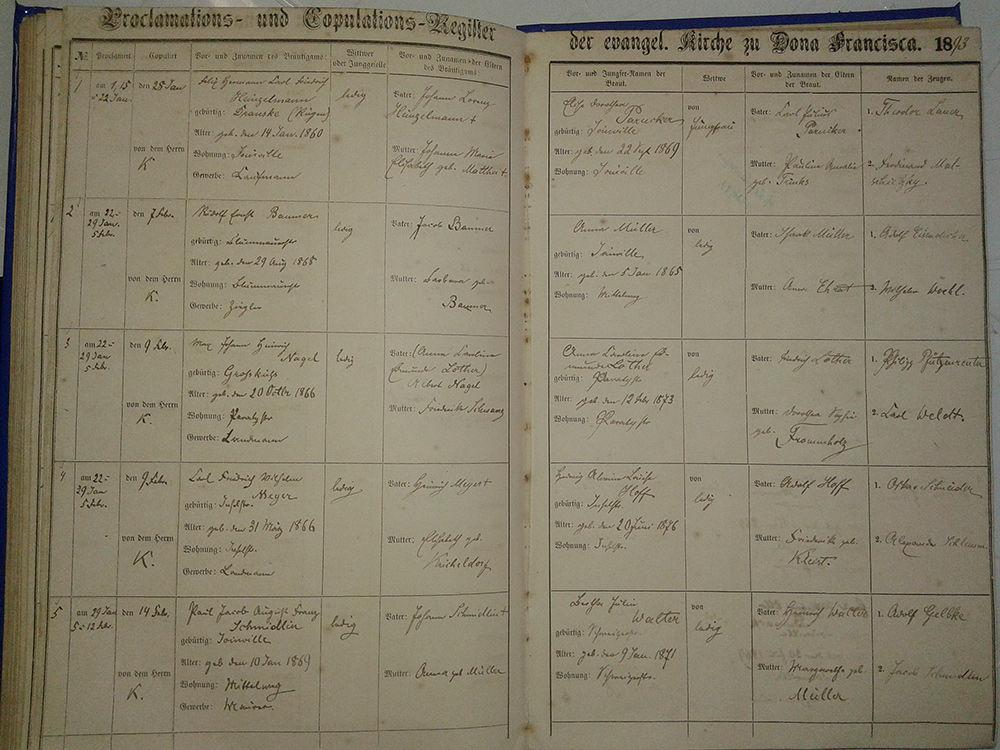 Proclamations- und Copulations-Register
der evangel. Kirche zu Dona Francisca. 1893
№
Proclamirt
Copulirt
Vor- und Zunamen des Bräutigams
Wittwer oder Junggeselle
Vor- und Zunamen der Eltern des Bräutigams
Vor- und Jungfer-Namen der Braut.
Wittwe
Vor- und Zunamen der Eltern der Braut.
Namen der Zeugen.
1
am 1, 15
22 Jan.
den 25 Jan
von dem Herrn
K.
Hermann Carl Friedrich
Heinzelmann
gebürtig: Dranske (Rügen)
Alter: geb. den 14 Jan. 1860
Wohnung: Joinville
Gewerbe: Kaufmann
ledig
Vater: Johann Lorenz
Heinzelmann +
Mutter: Johanna Maria
Elisabeth geb.
Elise Dorothea
Parucker
gebürtig: Joinville
Alter: geb den 22 Sept 1869
Wohnung: Joinville
von
Jungfrau
Vater: Carl Julius
Parucker
Mutter: Pauline Amalie
geb. Trinks
1. Theodor Lauer
2. Ferdinand
2
am 22-
29 Jan.
5 Febr.
den 7 Febr.
von dem Herrn
K.
Rudolf Ernst Baumer
gebürtig:
Alter: geb. den 29 Aug 1868
Wohnung:
Gewerbe: Ziegler
ledig
Vater: Jacob Baumer
Mutter: Barbara geb.
Baumer
Anna Müller
gebürtig: Joinville
Alter: geb. den 5 Jan 1865
Wohnung: Mittelweg
von
ledig
Vater: Müller
Mutter: Anna
1. Adolf
2. Wilhelm
3
am 22-
29 Jan
5 Febr.
den 9 Febr.
von dem Herrn
K.
Max Johann Heinrich
Nagel
gebürtig:
Alter: geb. den 20 Octbr 1866
Wohnung:
Gewerbe: Landmann
ledig
Vater: (Anna Caroline
Lother)
Albert Nagel
Mutter: Friederike
Anna Caroline
Lother
gebürtig:
Alter: geb. den 12 Febr 1873
Wohnung:
von
ledig
Vater: Friedrich Lother
Mutter: Dorothea
geb. Frommholz
1. Philipp
2. Carl Weldt.
4
am 22-
29 Jan
5 Febr.
den 9 Febr.
von dem Herrn
K.
Carl Friedrich Wilhelm
Meyer
gebürtig: Inselstr.
Alter: geb. den 31 März 1866
Wohnung: Inselstr.
Gewerbe: Landmann
ledig
Vater: Heinrich Meyer +
Mutter: Elisabeth geb.
Hedwig Alwine Louise
Hoff
gebürtig: Inselstr.
Alter: geb. den 20 Juni 1876
Wohnung: Inselstr.
von
ledig
Vater: Adolf Hoff
Mutter: Friederike geb.
1. Oskar Schneider
2. Alexander
5
am 29 Jan
5 u 12 Febr.
den 14 Febr.
von dem Herrn
K.
Paul Jacob August Franz
Schmidlin
gebürtig: Joinville
Alter: geb den 10 Jan 1869
Wohnung: Mittelweg
Gewerbe: Maurer
ledig
Vater: Johann Schmidlin +
Mutter: Anna geb Müller
Bertha Julie
Walter
gebürtig:
Alter: geb. den 9 Jan. 1871
Wohnung:
von
ledig
Vater: Heinrich Walter
Mutter: Margaretha geb.
Müller
1. Adolf Gelbke
2. Jacob Schmidlin